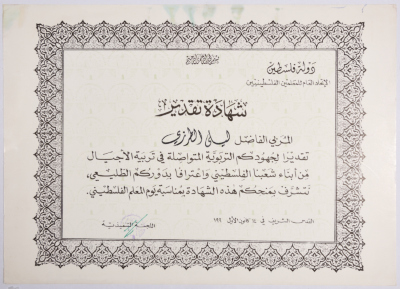 بسم الله الرحمن الرحيم
دولة فلسطين
الاتحاد العام للمعلمين الفلسطينيين
شهادة تقدير
المربي الفاضل ليلى الطرزي
تقديرا لجهودكم التربوية المتواصلة في تربية الأجيال
من أبناء شعبنا الفلسطيني واعترافا بدوركم الطليعي،
نتشرف بمنحكم هذه الشهادة بمناسبة يوم المعلم الفلسطيني.
القدس الشريف في ١٤ كانون الأول
اللجنة التنفيذية